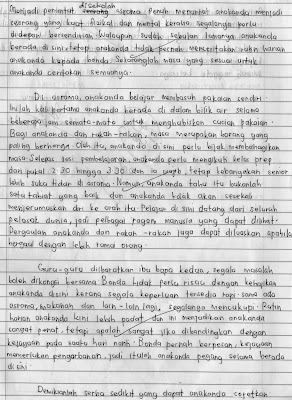 disekolah
Menjadi perintat asrama. Penuh menuntut anakanda menjadi
seorang yang kuat fizikal dan mental kerana segalanya perlu
dihadapi bersendirian. Walaupun sudah sebulan lamanya anakanda
berada di sini tetapi anakanda tidak pernah menceritakan rutin harian
anakanda kepada bonda. Sekaranglah masa yang sesuai untuk
anakanda ceritakan semuanya.
Di asrama, anakanda belajar membasuh pakaian sendiri.
Inilah kali pertama anakanda berada di dalam bilik air selama
beberapa jam semata-mata untuk menghabiskan cucian pakaian.
Bagi anakanda dan rakan-rakan, masa merupakan barang yang
paling berharga. Oleh itu, anakanda di sini perlu bijak membahagikan
masa. Selepas sesi pembelajaran, anakanda perlu mengikuti kelas prep
dari pukul 2.30 hingga 3.30 dan ia wajib, tetapi kebanyakan senior
lebih suka tidur di asrama. Namun, anakanda tahu itu bukanlah
satu tabiat yang baik dan anakanda tidak akan sesekali
menjerumuskan diri ke arah itu. Pelajar di sini datang dari seluruh
pelosok dunia, jadi pelbagai ragam manusia yang dapat dilihat.
Pergaulan anakanda dan rakan-rakan juga dapat diluaskan apabila
bergaul dengan lebih ramai orang.
Guru-guru diibaratkan ibu bapa kedua, segala masalah
boleh dikongsi bersama. Bonda tidak perlu risau dengan kebajikan
anakanda disini kerana segala keperluan tersedia tapi sama ada
asrama, makanan dan lain-lain lagi, segalanya mencukupi. Rutin
harian anakanda kini lebih padat dan ini menjadikan anakanda
sangat penat, tetapi apalah sangat jika dibandingkan dengan
kejayaan pada suatu hari nanti. Bonda pernah berpesan, kejayaan
memerlukan pengorbanan, jadi itulah anakanda pegang selama berada
di sini.
Demikianlah serba sedikit yang dapat anakanda ceritakan